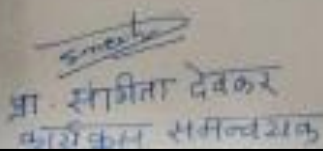 प्रा. संगिता देवकर
कार्यक्रम समन्वयक